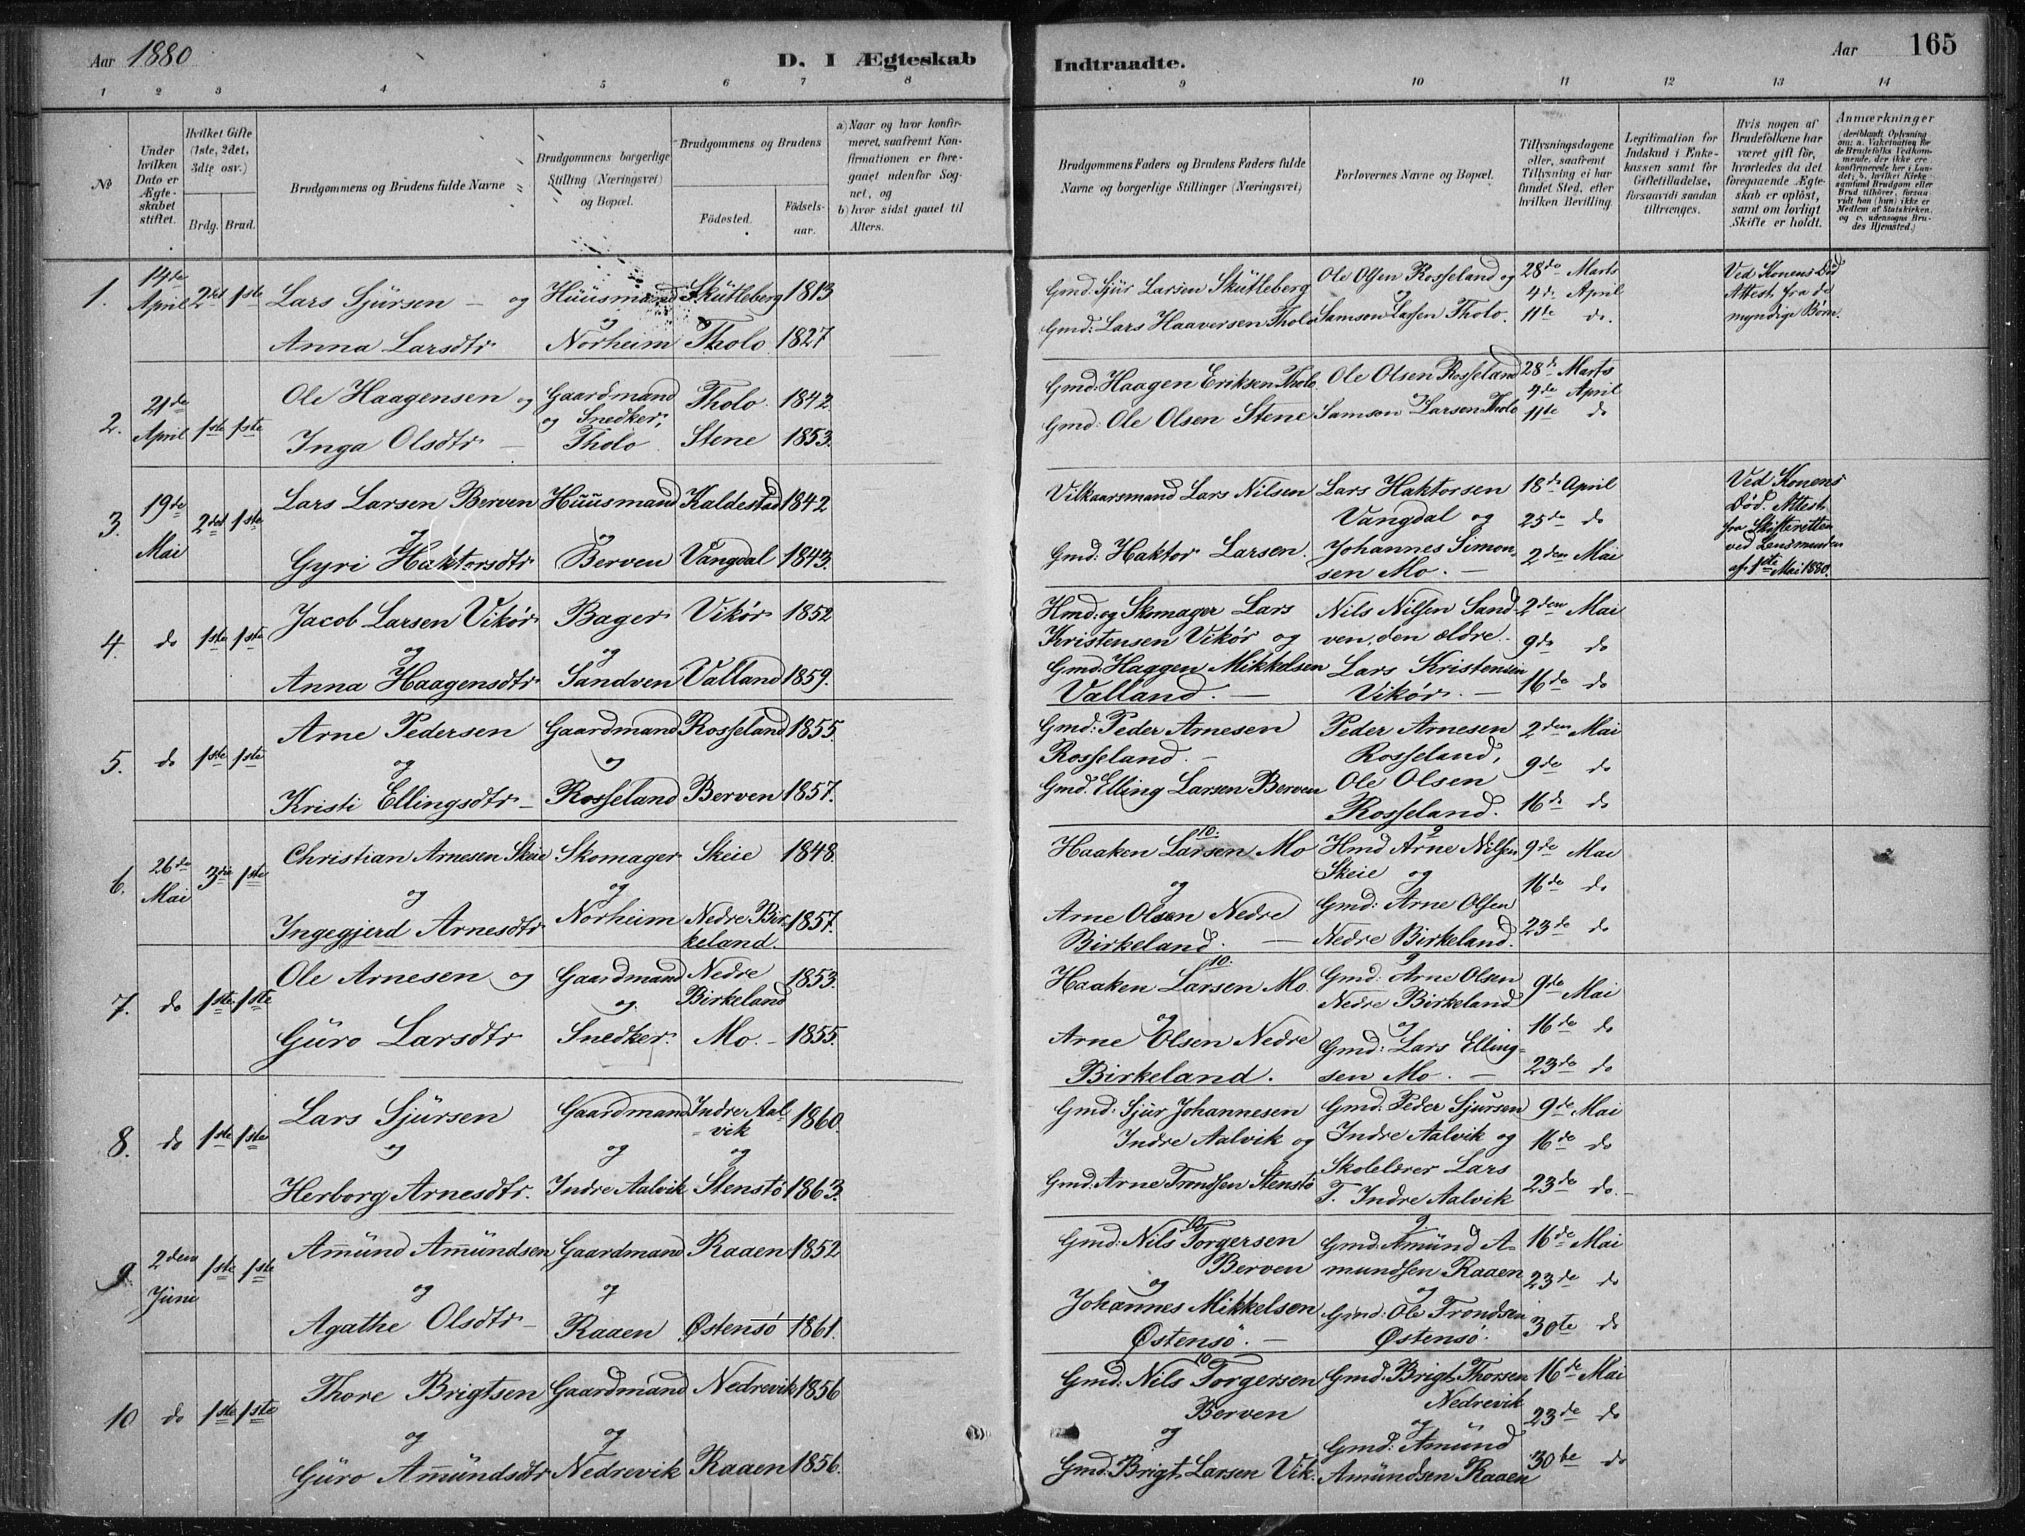 Aar 1880
D. I Ægteskab
Indtraadte.
Aar
165
1 2 3 4 5 6 7 8 9 10 11 12 13 14
No
Under hvilken Dato er Ægteskabet stiftet.
Hvilket Gifte (1ste, 2det, 3die osv.)
Brdg. Brud.
Brudgommens og Brudens fulde Navne
Brudgommens borgerlige Stilling (Næringsvei) og Bopæl.
Brudgommens og Brudens
Fødested.
Fødsels-aar.
a) Naar og hvor konfirmeret, saafremt Konfirmationen er foregaaet udenfor Sognet, og
b) hvor sidst gaaet til Alters.
Brudgommens Faders og Brudens Faders fulde Navne og borgerlige Stillinger (Næringsvei)
Forlovernes Navne og Bopæl.
Tillysningsdagene eller, saafremt Tillysning ei har fundet Sted, efter hvilken Bevilling.
Legitimation for Indskud i Enkekassen samt for Giftetilladelse, forsaavidt saadan tiltrænges.
Hvis nogen af Brudefolkene har været gift før, hvorledes da det foregaaende Ægteskab er opløst, samt om lovligt Skifte er holdt.
Anmærkninger
1. 14de April 2det 1ste
Lars Sjürsen – og
Anna Larsdtr
Huusmand
og
Norheim
Skütleberg 1813
Tholo 1827
Gmd: Sjür Larsen Skütleberg
Gmd: Lars Haaversen Tholo
Ole Olsen Rosseland og
Samson Larsen Tholo.
28de Marts
4de April
11te do.
Ved Konens Død
Attest fra de
myndige Børn.
2. 21de April 1ste 1ste
Ole Haagensen og
Inga Olsdtr –
Gaardmand
og Snedker,
Tholo
Tholo. 1842
Stene 1853.
Gmd: Haagen Eriksen Tholo
Gmd: Ole Olsen Stene
Ole Olsen Rosseland
og
Samson Larsen Tholo
28de Marts
4de April
11te do
3. 19de Mai 2det 1ste
Lars Larsen Berven
og
Gyri Haktorsdtr
Huusmand
og
Berven
Kaldestad 1842
Vangdal 1843.
Vilkaarsmand Lars Nilsen
Gmd: Haktor Larsen.
Lars Haktorsen
Vangdal og
Johannes Simon-
sen Mo. –
18de April
25de do
2den Mai
Ved Konens
Død. Attest
fra Skifteretten
ved Lensmanden
af 1ste Mai 1880.
4. do 1ste 1ste
Jacob Larsen Vikør
og
Anna Haagensdtr
Bager
og
Sandven
Vikør 1852
Valland 1859.
Hmd: og Skomager Lars
Kristensen Vikør og
Gmd: Haagen Mikkelsen
Valland. –
Nils Nilsen Sand-
ven, den ældre.
Lars Kristensen
Vikør. –
2den Mai
9de do
16de do
5. do 1ste 1ste
Arne Pedersen
og
Kristi Ellingsdtr –
Gaardmand
og
Rosseland
Rosseland 1855.
Berven 1857.
Gmd: Peder Arnesen
Rosseland. –
Gmd. Elling Larsen Berven
Peder Arnesen
Rosseland,
Ole Olsen
Rosseland.
2den Mai
9de do
16de do
6. 26de Mai 3die 1ste
Christian Arnesen Skeie
og
Ingegjerd Arnesdtr
Skomager
og
Norheim
Skeie 1848.
Nedre Bir-
keland. 1857.
10.
Haaken Larsen Mo
og
Arne Olsen Nedre
Birkeland. –
9
Hmd Arne Nilsen
Skeie og
Gmd: Arne Olsen
Nedre Birkeland.
9de Mai
16de do
23de do
7. do 1ste 1ste
Ole Arnesen og
Güro Larsdtr
Gaardmand
og
Snedker.
Nedre
Birkeland 1853.
Mo. – 1855.
10.
Haaken Larsen Mo.
og
Arne Olsen Nedre
Birkeland.
9
Gmd: Arne Olsen
Nedre Birkeland
og
Gmd: Lars Elling-
sen Mo. –
9de Mai
16de do
23de do
8. do 1ste 1ste
Lars Sjürsen
og
Herborg Arnesdtr.
Gaardmand
og
Indre Aalvik
Indre Aal-
vik 1860.
og
Stenstø 1863.
Gmd: Sjur Johannesen
Indre Aalvik og
Gmd: Arne Trondsen Stenstø
Gmd: Peder Sjursen
Indre Aalvik og
Skolelærer Lars
T. Indre Aalvik
9de Mai
16de do
23de do. –
9 2den Juni 1ste 1ste
Amünd Amündsen
og
Agathe Olsdtr –
Gaardmand
og
Raaen
Raaen 1852
Østensø 1861.
10
Gmd: Nils Torgersen
Berven
og
Johannes Mikkelsen
Østensø. –
9.
Gmd: Amünd A-
mundsen Raaen
og
Gmd: Ole Trondsen
Østensø.
16de Mai
23de do
30te do
10 do 1ste 1ste
Thore Brigtsen
og
Güro Amündsdtr
Gaardmand
og
Nedrevik
Nedrevik 1856
Raaen 1856.
10
Gmd: Nils Torgersen
Berven
og
Gmd: Brigt Larsen Vik.
Gmd: Brigt Thorsen
Nedrevik
og
Gmd: Amünd
Amündsen Raaen
16de Mai
23de do
30te do